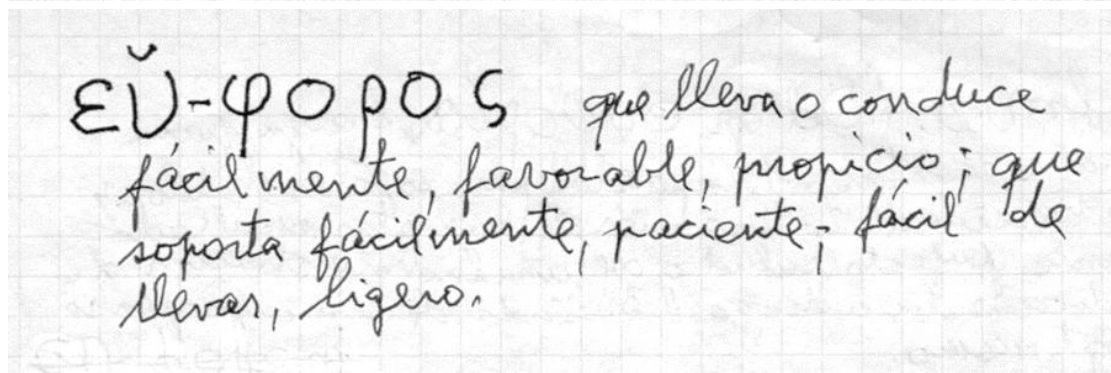 εὔ-φορος que lleva o conduce
fácilmente, favorable, propicio; que
soporta fácilmente, paciente; fácil de
llevar, ligero.